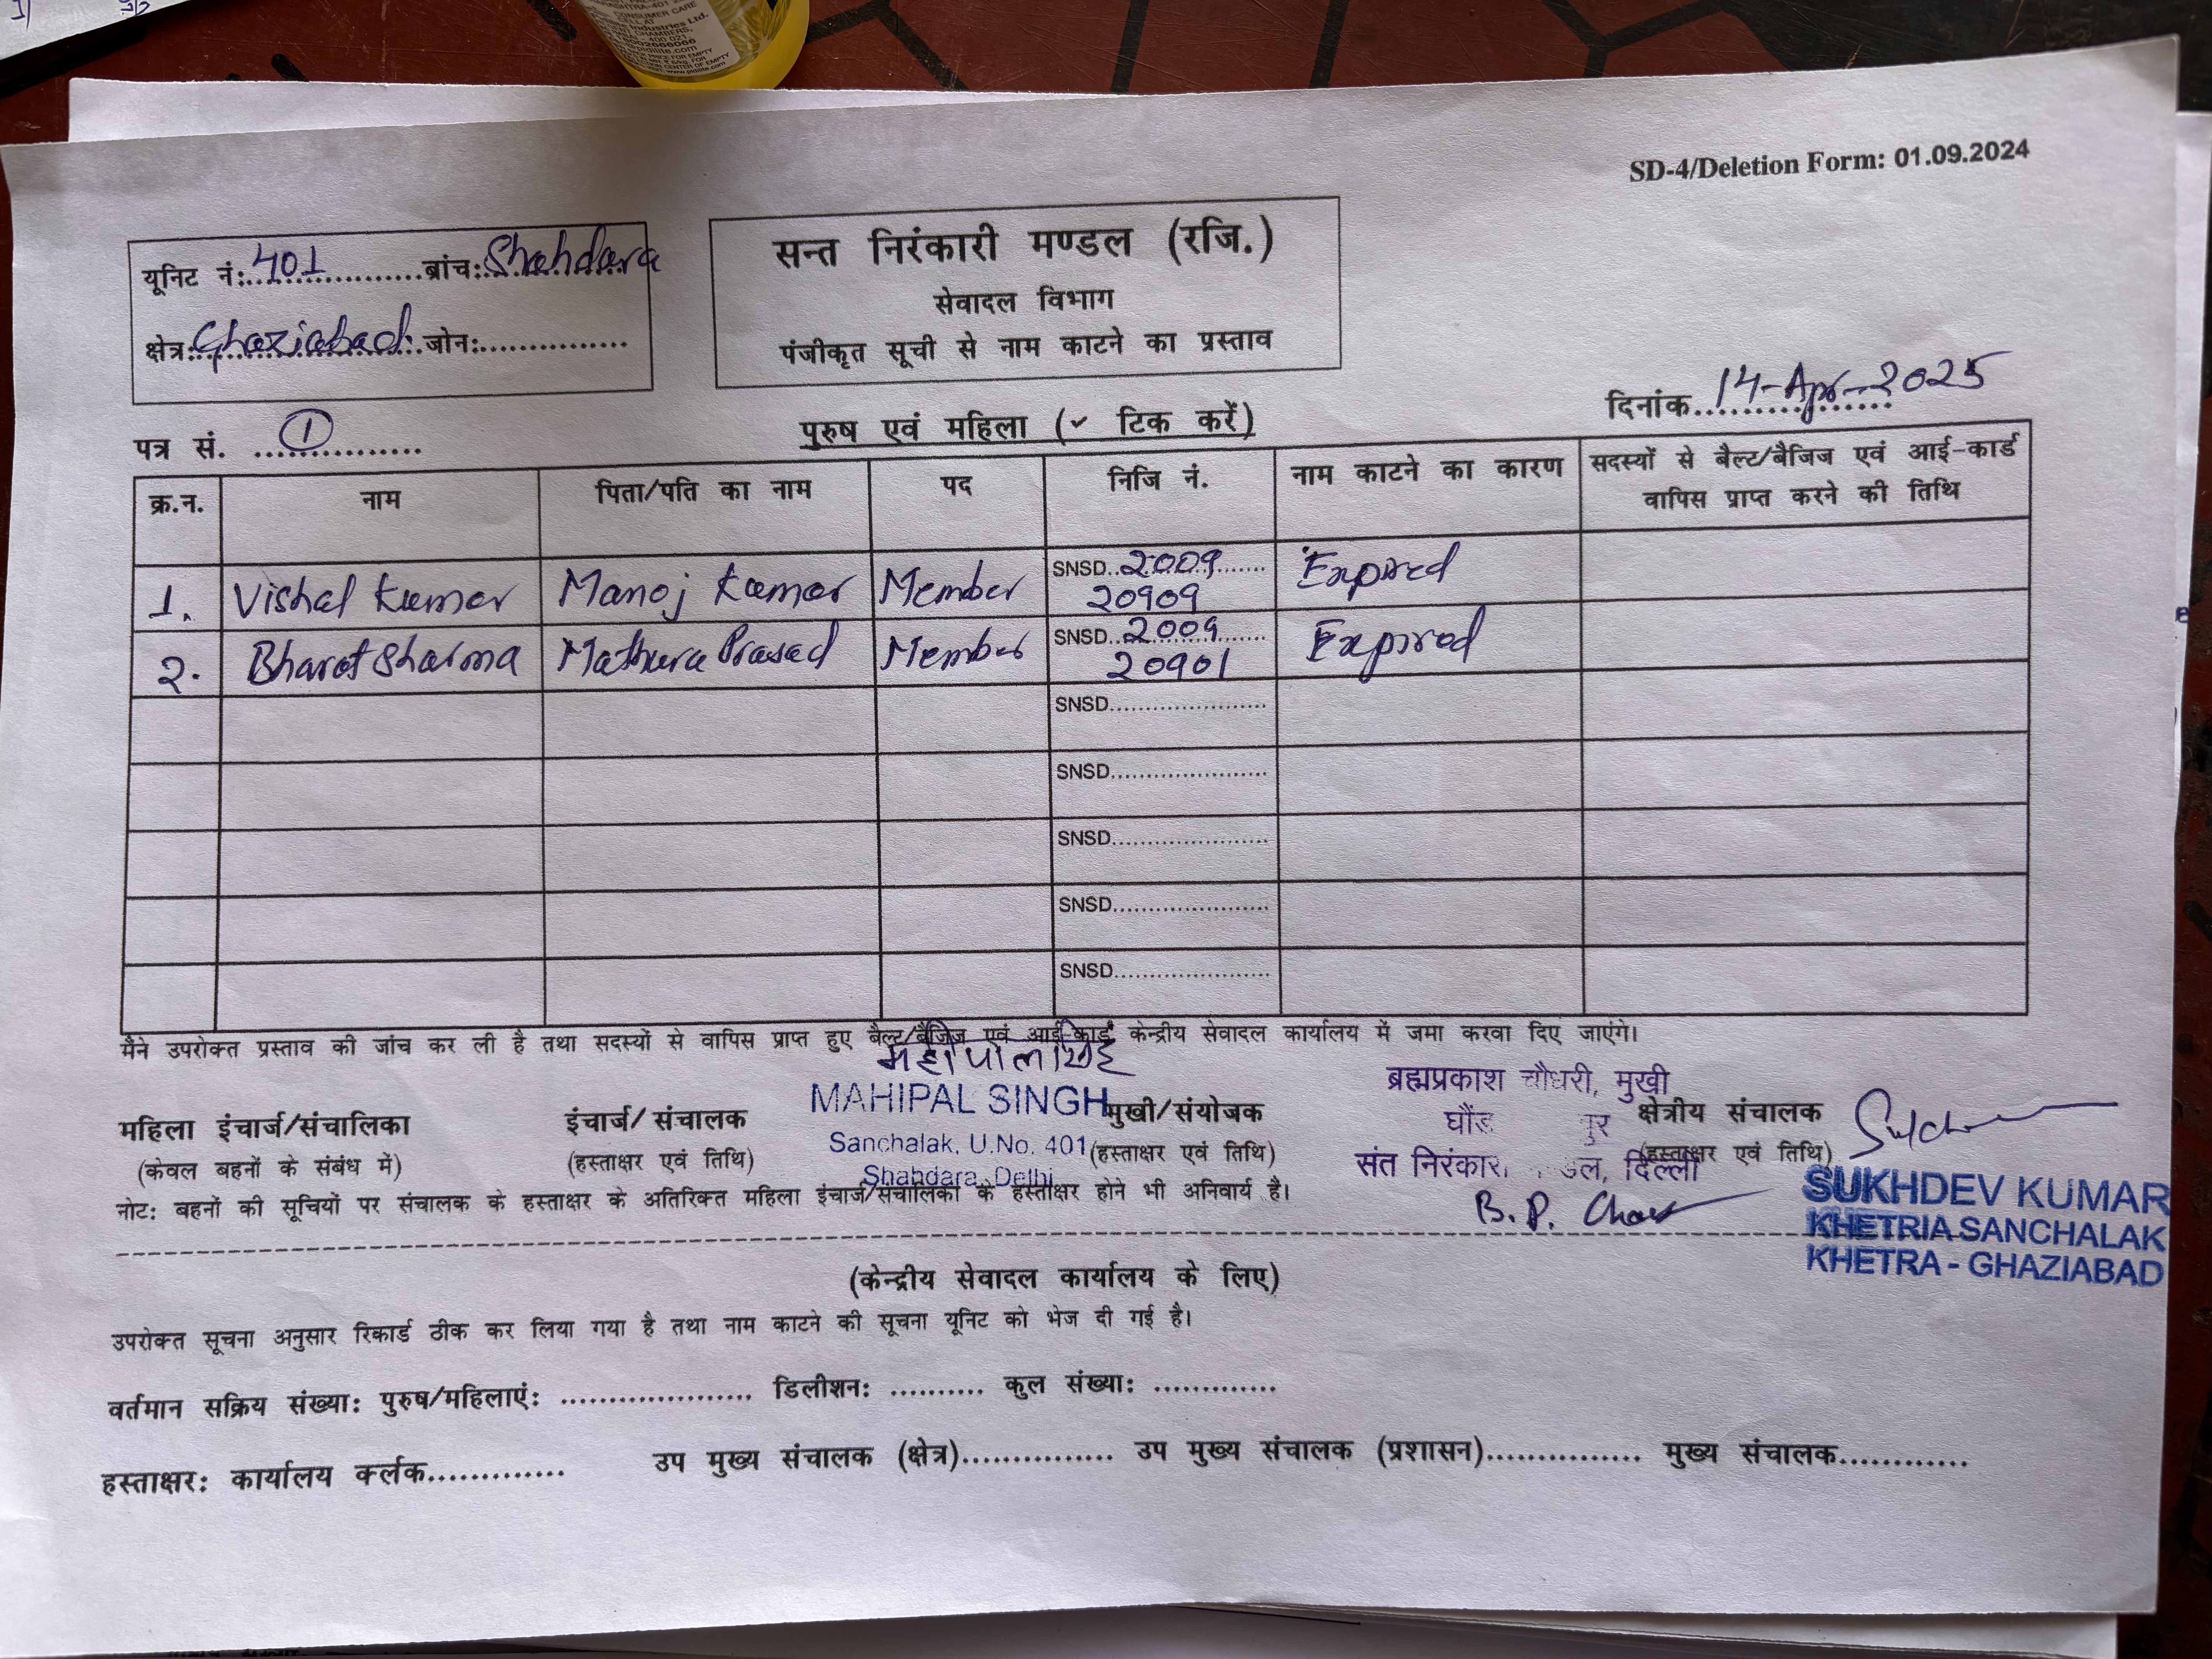 CONSUMER CARE
CELL AT
Industries Ltd.
CHAMBERS,
400 021
SD-4/Deletion Form: 01.09.2024
यूनिट नं: 401 ब्रांच: Shahdara
क्षेत्र: Ghaziabad जोन:
सन्त निरंकारी मण्डल (रजि.)
सेवादल विभाग
पंजीकृत सूची से नाम काटने का प्रस्ताव
दिनांक 14-Apr-2025
पत्र सं. 1
पुरुष एवं महिला (✓ टिक करें)
क्र.न. नाम पिता/पति का नाम पद निजि नं. नाम काटने का कारण सदस्यों से बैल्ट/बैजिज एवं आई-कार्ड
वापिस प्राप्त करने की तिथि
1. Vishal Kumar Manoj Kumar Member SNSD 2009 Expired
20909
2. Bharat Sharma Mathura Prasad Member SNSD 2009 Expired
20901
SNSD
SNSD
SNSD
SNSD
SNSD
मैंने उपरोक्त प्रस्ताव की जांच कर ली है तथा सदस्यों से वापिस प्राप्त हुए बैल्ट/बैजिज एवं आई-कार्ड केन्द्रीय सेवादल कार्यालय में जमा करवा दिए जाएंगे।
महीपाल सिंह
MAHIPAL SINGH
Sanchalak, U.No. 401
Shahdara, Delhi
ब्रह्मप्रकाश चौधरी, मुखी
संत निरंकारी दिल्ली
B.P.
महिला इंचार्ज/संचालिका इंचार्ज/संचालक मुखी/संयोजक क्षेत्रीय संचालक
(केवल बहनों के संबंध में) (हस्ताक्षर एवं तिथि) (हस्ताक्षर एवं तिथि) (हस्ताक्षर एवं तिथि)
SUKHDEV KUMAR
KHETRIA SANCHALAK
KHETRA - GHAZIABAD
नोट: बहनों की सूचियों पर संचालक के हस्ताक्षर के अतिरिक्त महिला इंचार्ज/संचालिका के हस्ताक्षर होने भी अनिवार्य है।
(केन्द्रीय सेवादल कार्यालय के लिए)
उपरोक्त सूचना अनुसार रिकार्ड ठीक कर लिया गया है तथा नाम काटने की सूचना यूनिट को भेज दी गई है।
वर्तमान सक्रिय संख्या: पुरुष/महिलाएं: डिलीशन: कुल संख्या:
हस्ताक्षर: कार्यालय क्र्लक उप मुख्य संचालक (क्षेत्र) उप मुख्य संचालक (प्रशासन) मुख्य संचालक